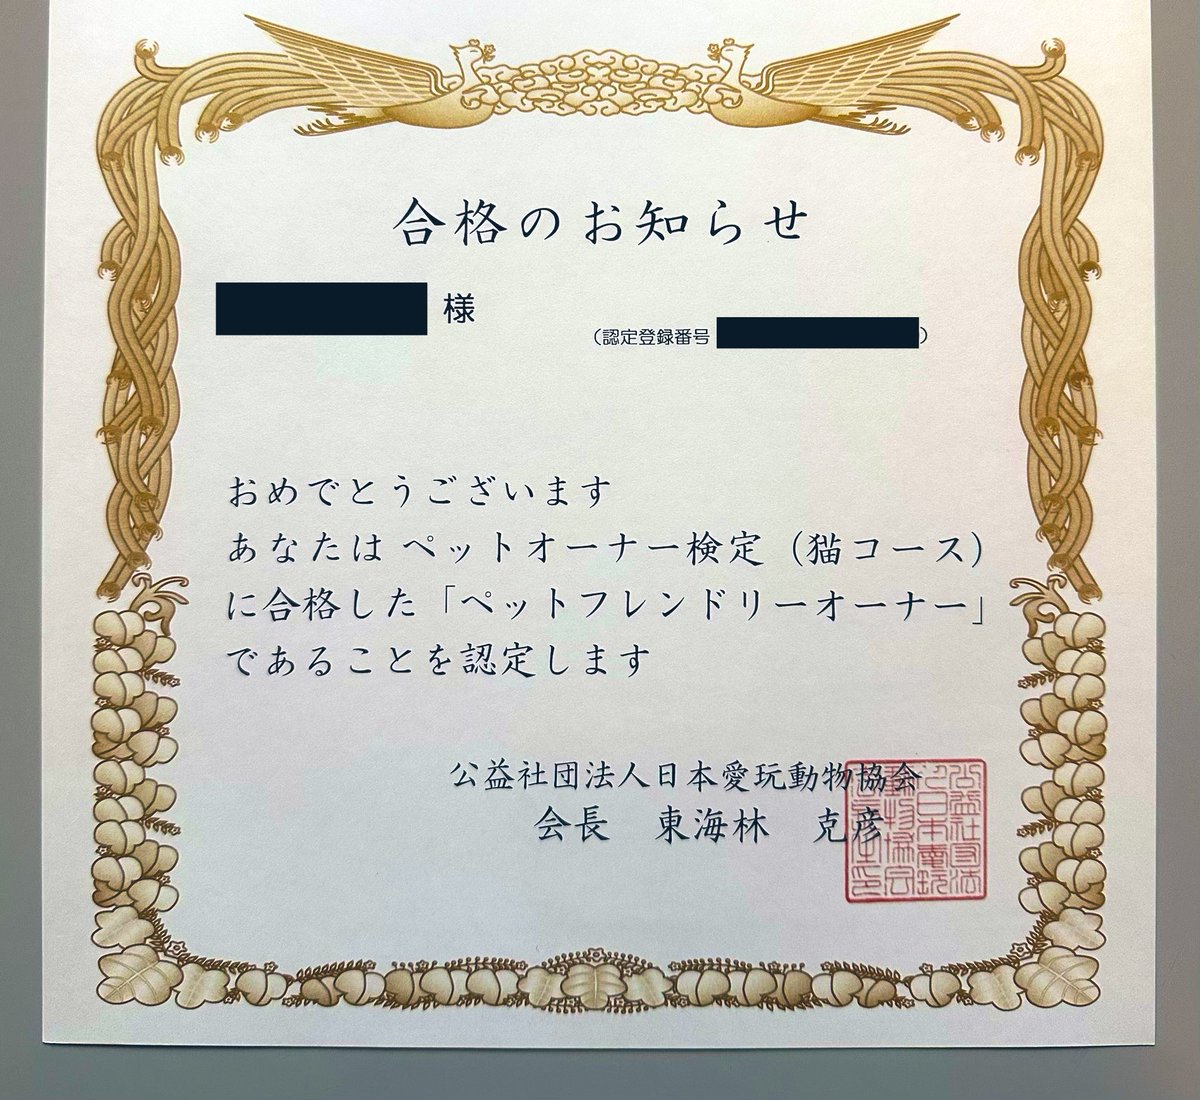 合格のお知らせ
様
（認定登録番号 ）
おめでとうございます
あなたは ペットオーナー検定（猫コース）
に合格した「ペットフレンドリーオーナー」
であることを認定します
公益社団法人日本愛玩動物協会
会長 東海林 克彦